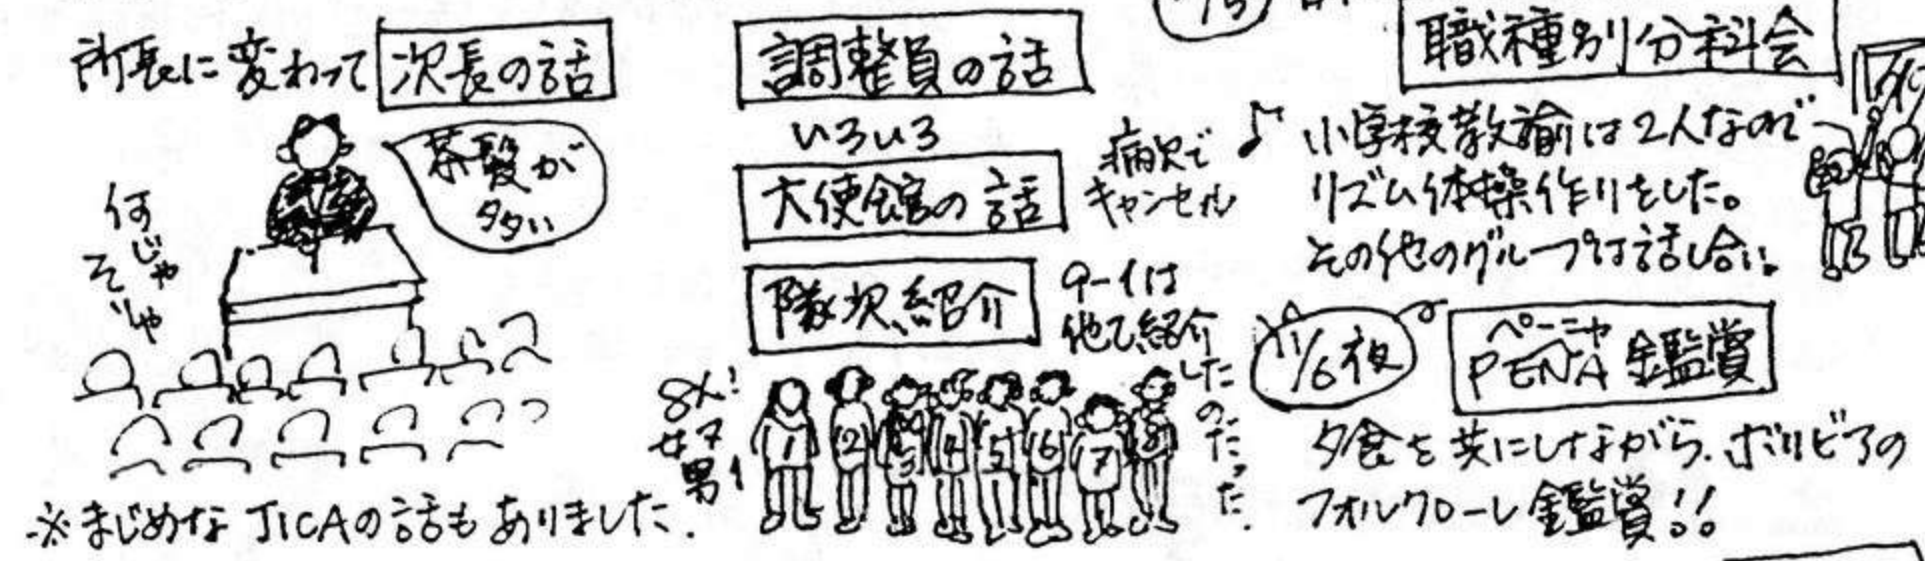 所長に変わって 次長の話
茶髪が
多い
何じゃ
そじゃ
※まじめなJICAの話もありました.
調整員の話
いろいろ
大使館の話
病欠で
キャンセル
隊次紹介
9-1は
他己紹介
したのだった.
8人!
女7
男1
1 2 3 4 5 6 7 8
職種別分科会
小学校教諭は2人なので
リズム体操作りをした。
その他のグループは話し合い。
11/6夜
ペーニャ
PENA 鑑賞
夕食を共にしながら、ボリビアの
フォルクローレ鑑賞!!